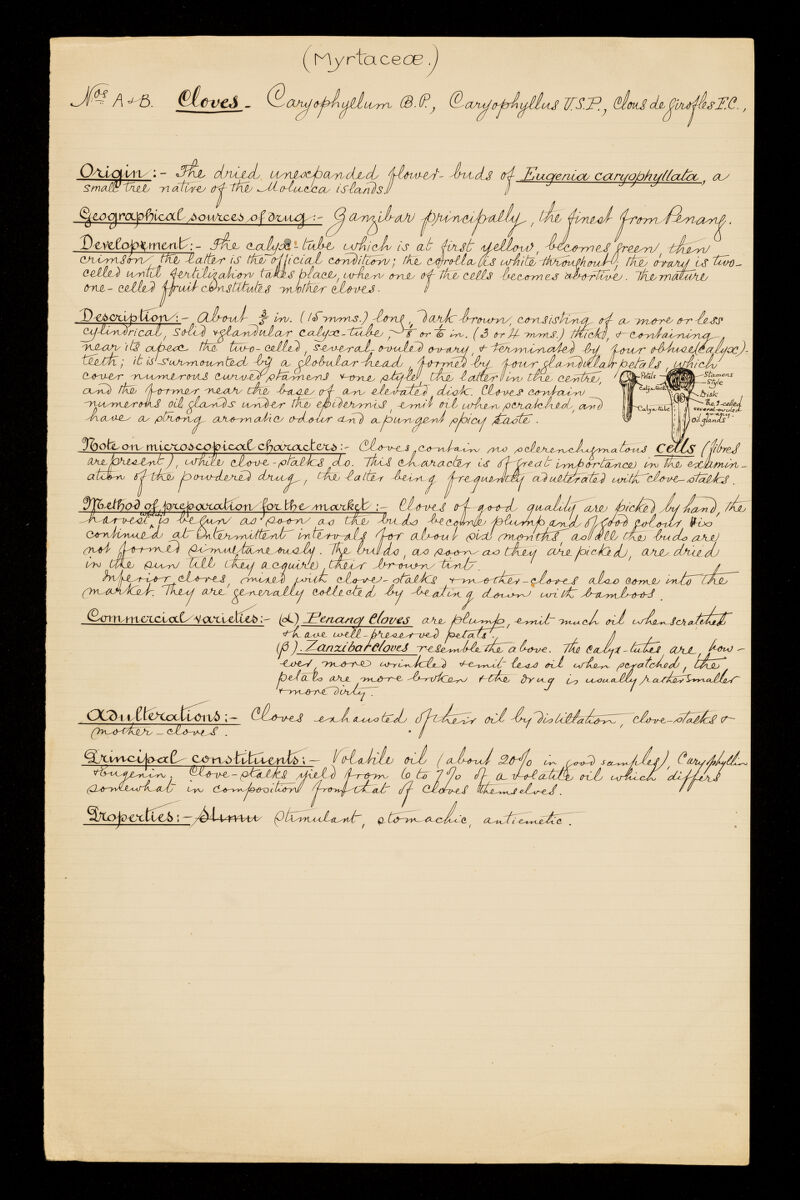 (Myrtaceæ.)
Nos A & B. Cloves - Caryophyllum B.P., Caryophyllus U.S.P., Clous de Girofles F.C.,
Origin :- The dried unexpanded flower-buds of Eugenia caryophyllata, a
small tree native of the Molucca islands.
Geographical sources of drug :- Zanzibar principally, the finest from Penang.
Development :- The calyx-tube which is at first yellow, becomes green, then
crimson, the latter is the official condition; the corolla is white throughout; the ovary is two-
celled until fertilization takes place, when one of the cells becomes abortive. The mature
one-celled fruit constitutes mother cloves.
Description :- About 3/5 in. (15 mms.) long, dark brown, consisting of a more or less
cylindrical, solid & glandular calyx-tube, 1/8 or 1/6 in. (3 or 4 mms.) thick, & containing
near its apex the two-celled, several-ovuled ovary, & terminated by four obtuse (calyx)-
teeth; it is surmounted by a globular head, formed by four glandular petals which
cover numerous curved stamens & one style, the latter in the centre,
and the former near the base of an elevated disk. Cloves contain
numerous oil glands under the epidermis, emit oil when scratched, and
have a strong aromatic odour and a pungent spicy taste.
Petals
Calyx-teeth
Calyx tube
Stamens
Style
Disk
The 2-celled
several-ovuled
ovary
Oil glands
Note on microscopical characters :- Cloves contain no sclerenchymatous cells (fibres
are present), while clove-stalks do. This character is of great importance in the examin-
ation of the powdered drug, the latter being frequently adulterated with clove-stalks.
Method of preparation for the market :- Cloves of good quality are picked by hand, the
harvest which is begun as soon as the buds become plump and of good colour, is
continued at intermittent intervals for about six months, as all the buds are
not formed simultaneously. The buds, as soon as they are picked, are dried
in the sun till they acquire their brown tint.
Inferior cloves, mixed with clove-stalks & mother-cloves also come into the
market. They are generally collected by beating down with bamboos.
Commercial varieties :- (α) Penang Cloves are plump, emit much oil when scratched
& have well-preserved petals.
(β). Zanzibar cloves resemble the above. The calyx-tubes are, how-
ever, more wrinkled & emit less oil when scratched, the
petals are more broken & the drug is usually rather smaller
& more dirty.
Adulterations :- Cloves exhausted of their oil by distillation, clove-stalks &
mother-cloves.
Principal constituents :- Volatile oil (about 20% in good samples), Caryophyllin
& Eugenin. Clove-stalks yield from 6 to 7% of a volatile oil which differs
somewhat in composition from that of cloves themselves.
Properties :- Stimu Stimulant, stomachic, antiemetic.